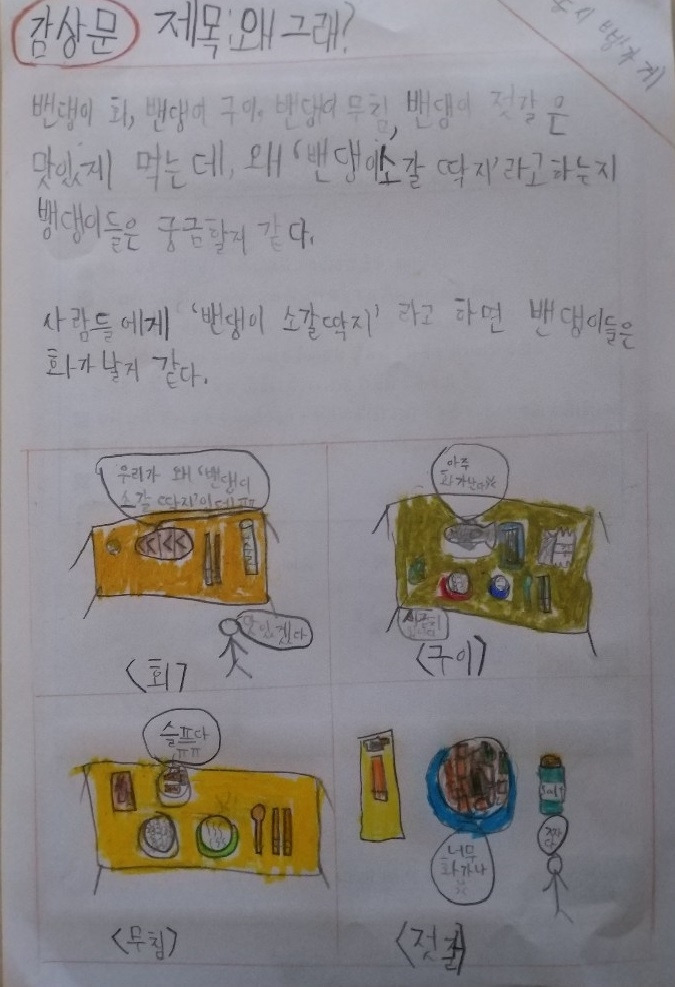 감상문 제목:왜 그래?
동시 빵가게
밴댕이 회, 밴댕이 구이, 밴댕이 무침, 밴댕이 젓갈은
맛있게 먹는데, 왜 '밴댕이 소갈 딱지'라고 하는지
뱅댕이들은 궁금할지 같다.
사람들에게 '밴댕이 소갈딱지' 라고 하면 밴댕이들은
화가 날지 같다.
우리가 왜 '밴댕이
소갈 딱지'이데 ㅠㅠ
맛있겠다
<회>
아주
화가난다
<구이>
슬프다
ㅠㅠ
<무침>
salt
짜다
너무
화가나
<젓갈>